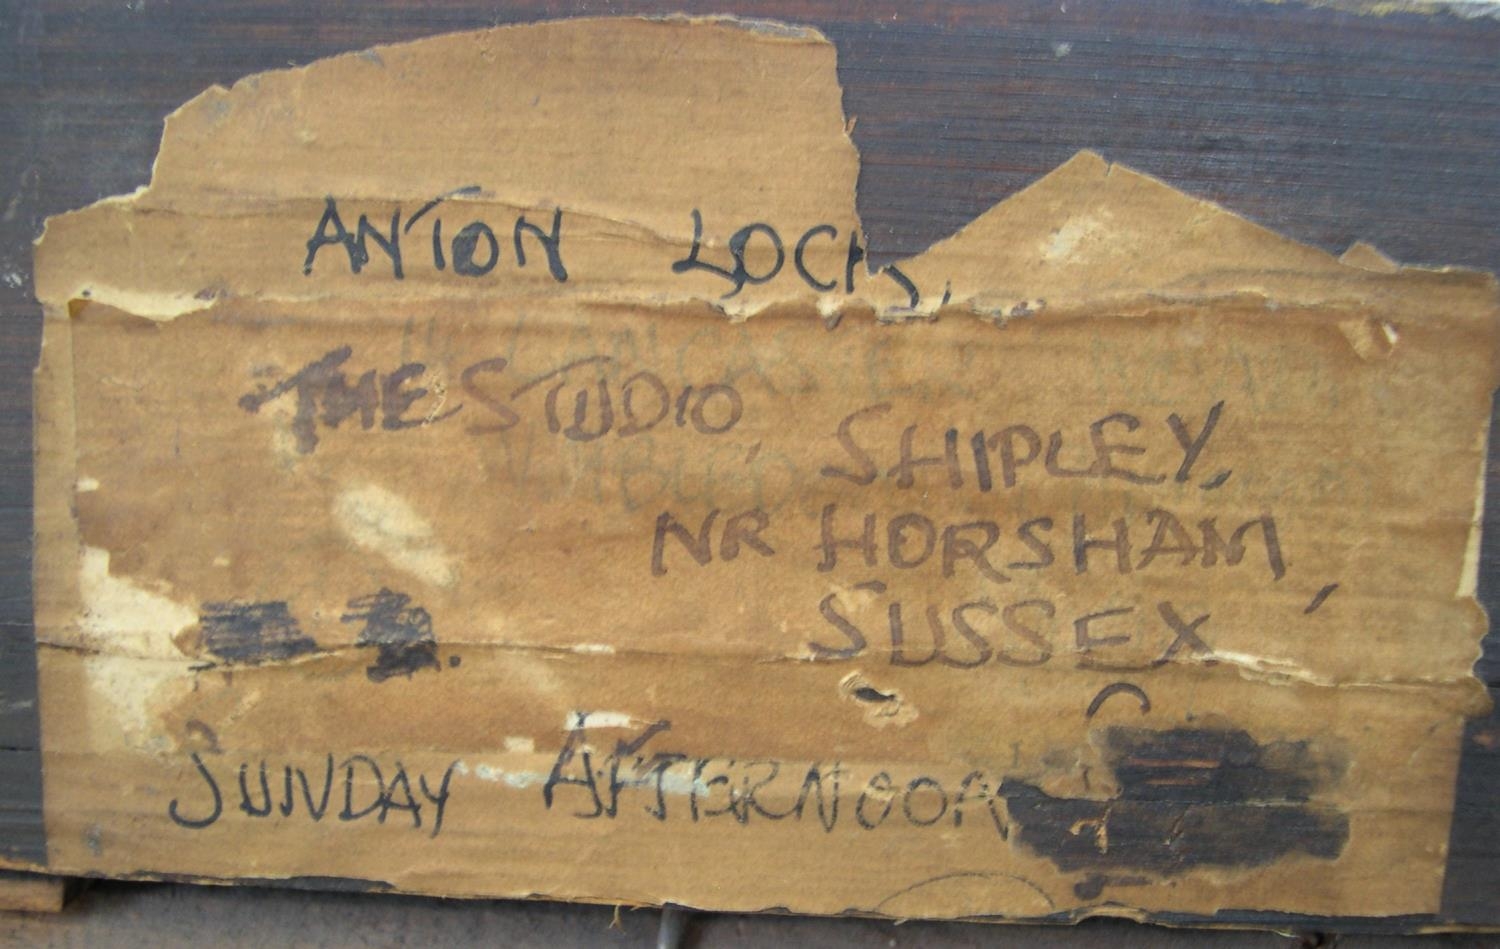 ANTON LOCK,
THE STUDIO
SHIPLEY,
NR HORSHAM,
SUSSEX
SUNDAY AFTERNOON